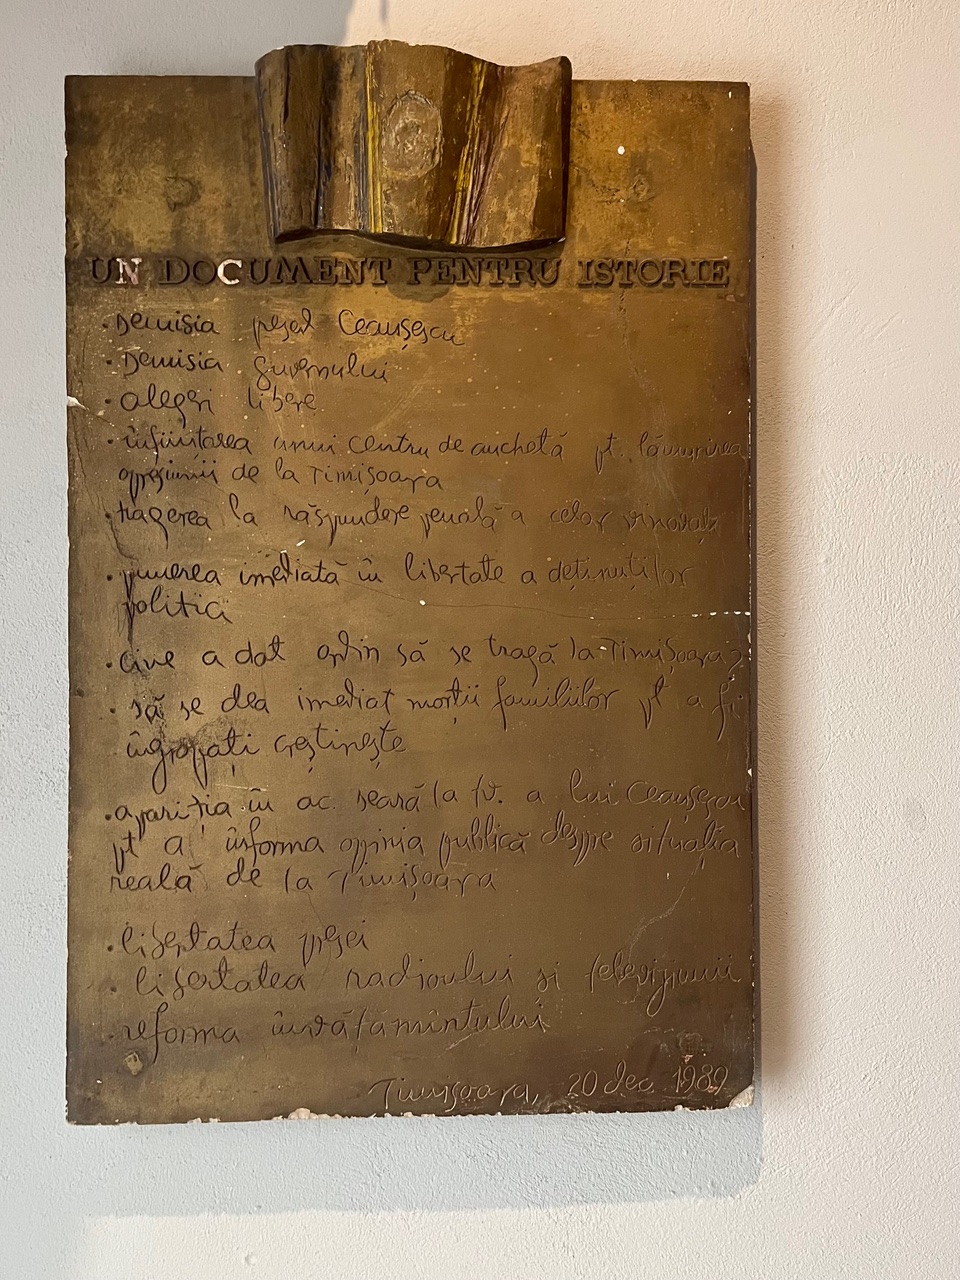 UN DOCUMENT PENTRU ISTORIE
· Demisia președ Ceaușescu
· Demisia guvernului
· alegeri libere
· înființarea unui centru de anchetă pt. lămurirea
opresiunii de la Timișoara
· tragerea la răspundere penală a celor vinovați
· punerea imediată în libertate a deținuților
politici
· cine a dat ordin să se tragă la Timișoara?
· să se dea imediat morții familiilor pt a fi
îngropați creștinește
· apariția în ac. seară la tv. a lui Ceaușescu
pt a informa opinia publică despre situația
reală de la Timișoara
· libertatea presei
· libertatea radioului si televiziunii
· reforma învățămîntului
Timișoara, 20 dec 1989